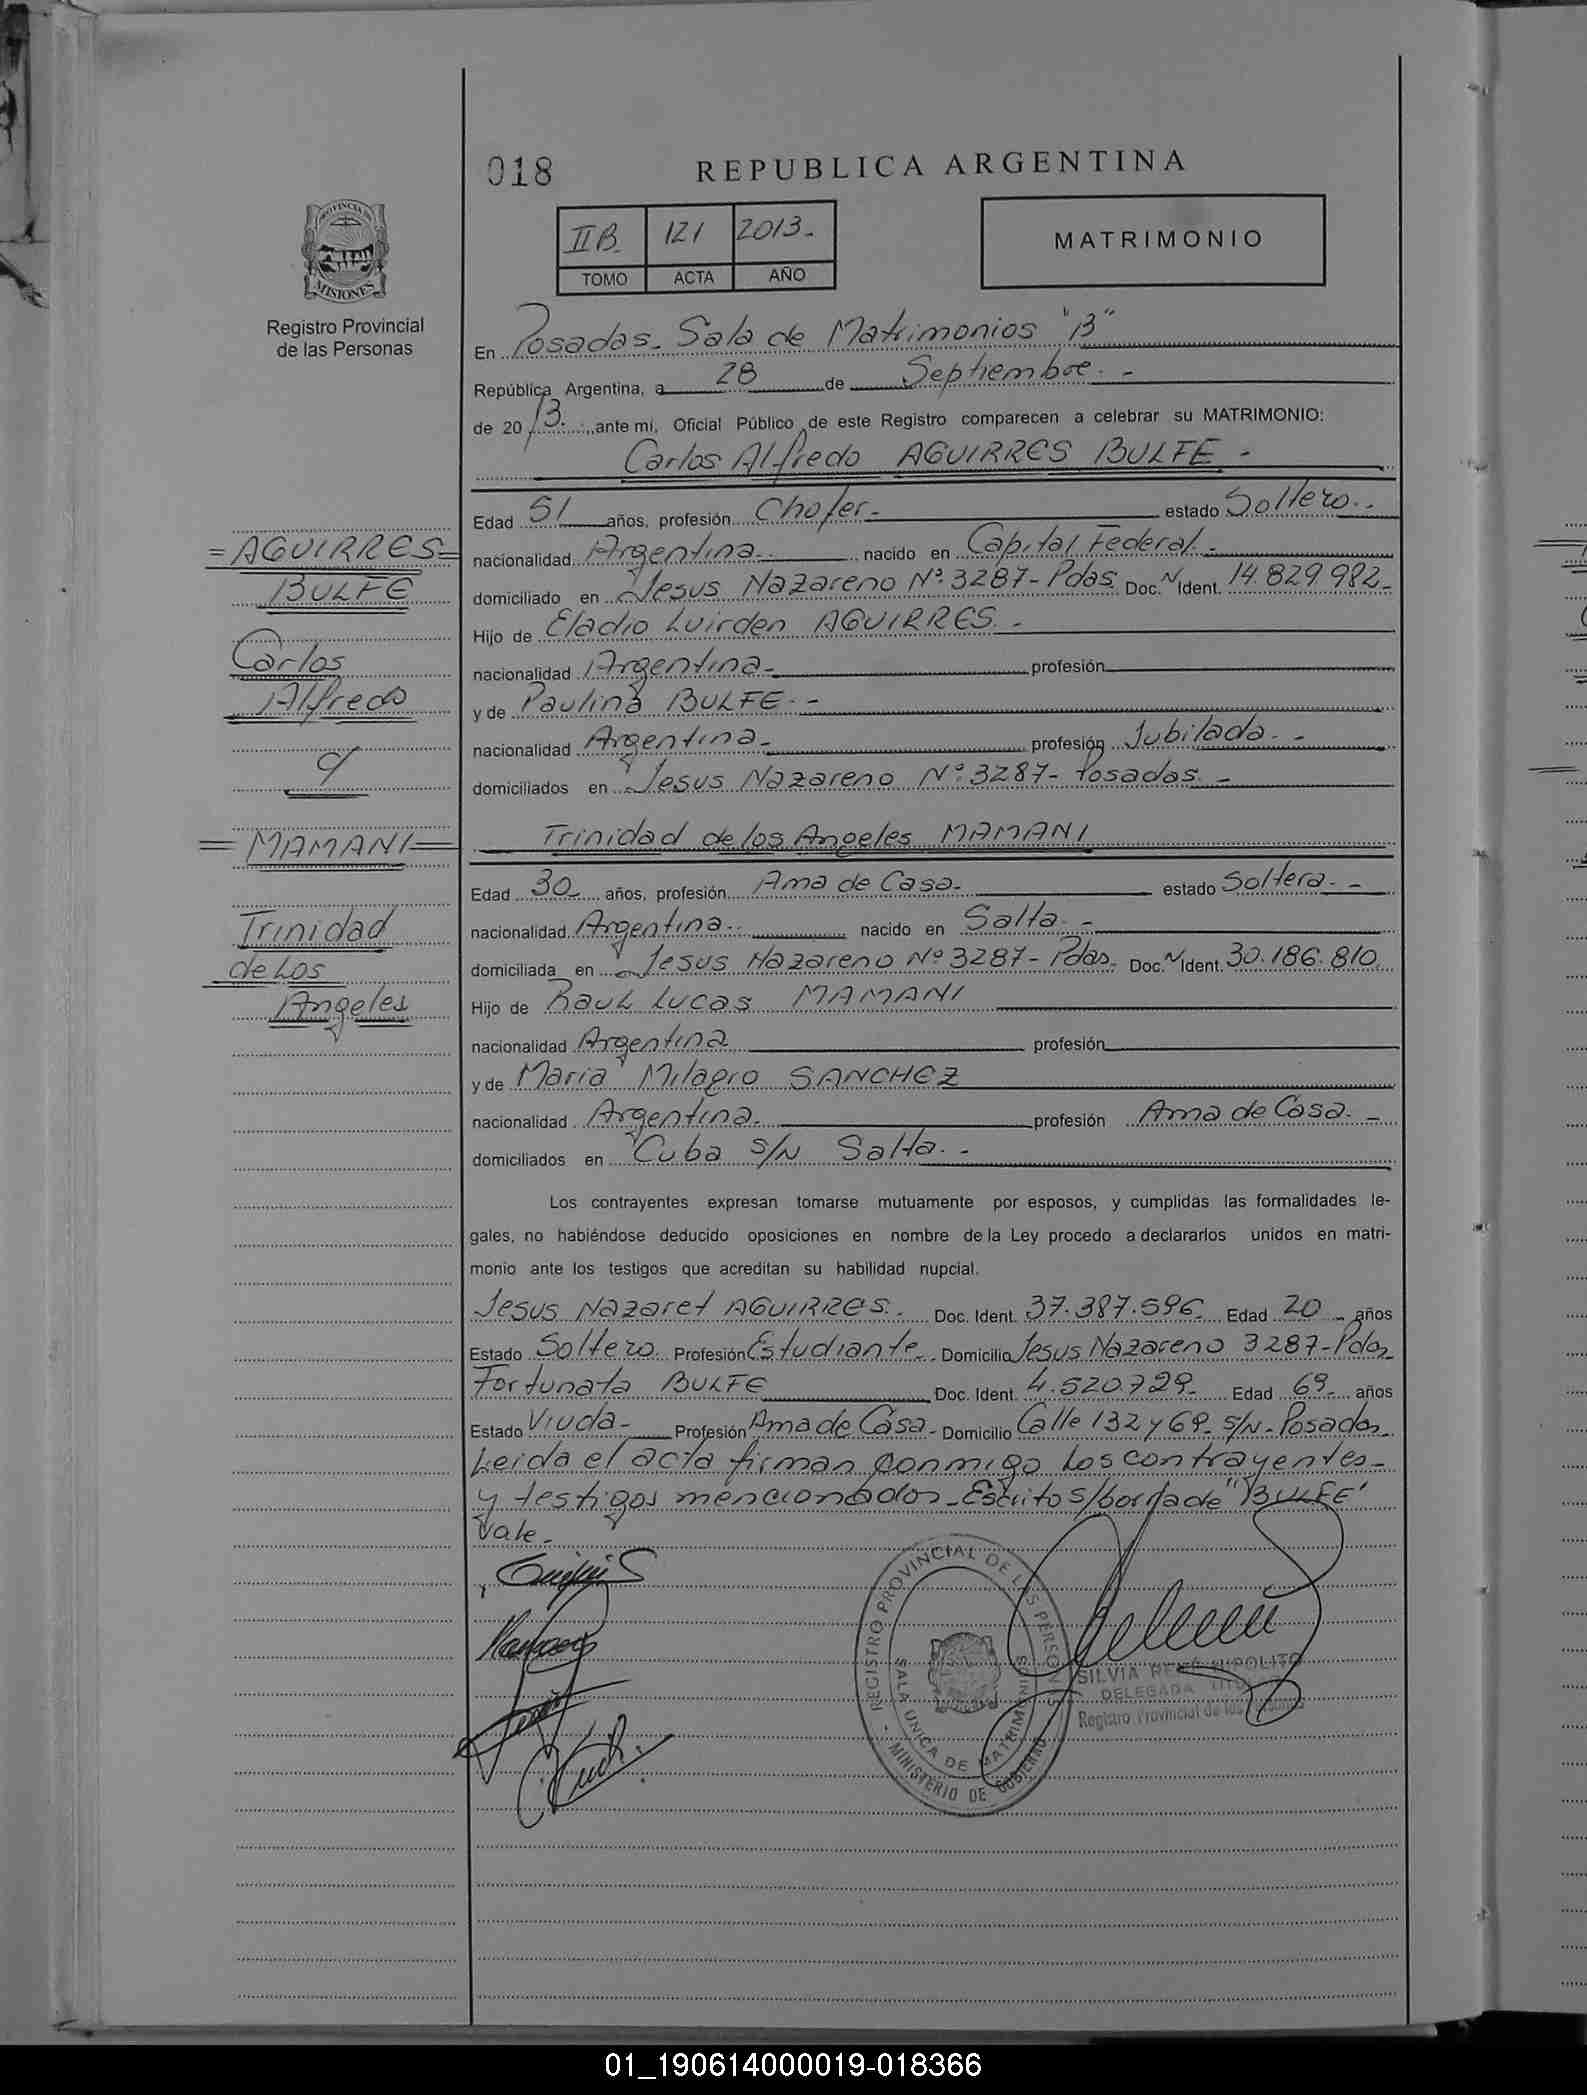 018
REPUBLICA ARGENTINA
IIB 121 2013.-
TOMO ACTA AÑO
MATRIMONIO
PROVINCIA DE MISIONES
Registro Provincial
de las Personas
En Posadas. Sala de Matrimonios "B"
República Argentina, a 28 de Septiembre. -
de 2013. ante mi, Oficial Público de este Registro comparecen a celebrar su MATRIMONIO:
Carlos Alfredo AGUIRRES BULFE -
Edad 51 años, profesión Chofer- estado Soltero. -
nacionalidad Argentina. nacido en Capital Federal. -
domiciliado en Jesus Nazareno Nº 3287- Pdas. Doc. N Ident. 14.829.982-
Hijo de Eladio Luirden AGUIRRES. -
nacionalidad Argentina- profesión
y de Paulina BULFE. -
nacionalidad Argentina- profesión Jubilada. -
domiciliados en Jesus Nazareno Nº 3287- Posadas. -
Trinidad de los Angeles MAMANI
Edad 30 años, profesión Ama de Casa- estado Soltera. -
nacionalidad Argentina. nacido en Salta. -
domiciliada en Jesus Nazareno Nº 3287- Pdas. Doc. N Ident. 30.186.810
Hijo de Raul Lucas MAMANI
nacionalidad Argentina profesión
y de Maria Milagro SANCHEZ
nacionalidad Argentina. profesión Ama de Casa. -
domiciliados en Cuba S/N Salta. -
= AGUIRRES =
BULFE
Carlos
Alfredo
c/
= MAMANI =
Trinidad
de Los
Angeles
Los contrayentes expresan tomarse mutuamente por esposos, y cumplidas las formalidades le-
gales, no habiéndose deducido oposiciones en nombre de la Ley procedo a declararlos unidos en matri-
monio ante los testigos que acreditan su habilidad nupcial.
Jesus Nazaret AGUIRRES. Doc. Ident. 37.387.596 Edad 20 años
Estado Soltero Profesión Estudiante. Domicilio Jesus Nazareno 3287-Pdas
Fortunata BULFE Doc. Ident. 4.520.729- Edad 69 años
Estado Viuda- Profesión Ama de Casa- Domicilio Calle 132 y 69- S/N- Posadas
Leida el acta firman conmigo los contrayentes-
y testigos mencionados- Escrito s/borrade "BULFE"
Vale-
REGISTRO PROVINCIAL DE LAS PERSONAS
SALA UNICA DE MATRIMONIOS
- MINISTERIO DE GOBIERNO
SILVIA RENÉ HIPOLITO
DELEGADA
Registro Provincial de las Personas
01_190614000019-018366